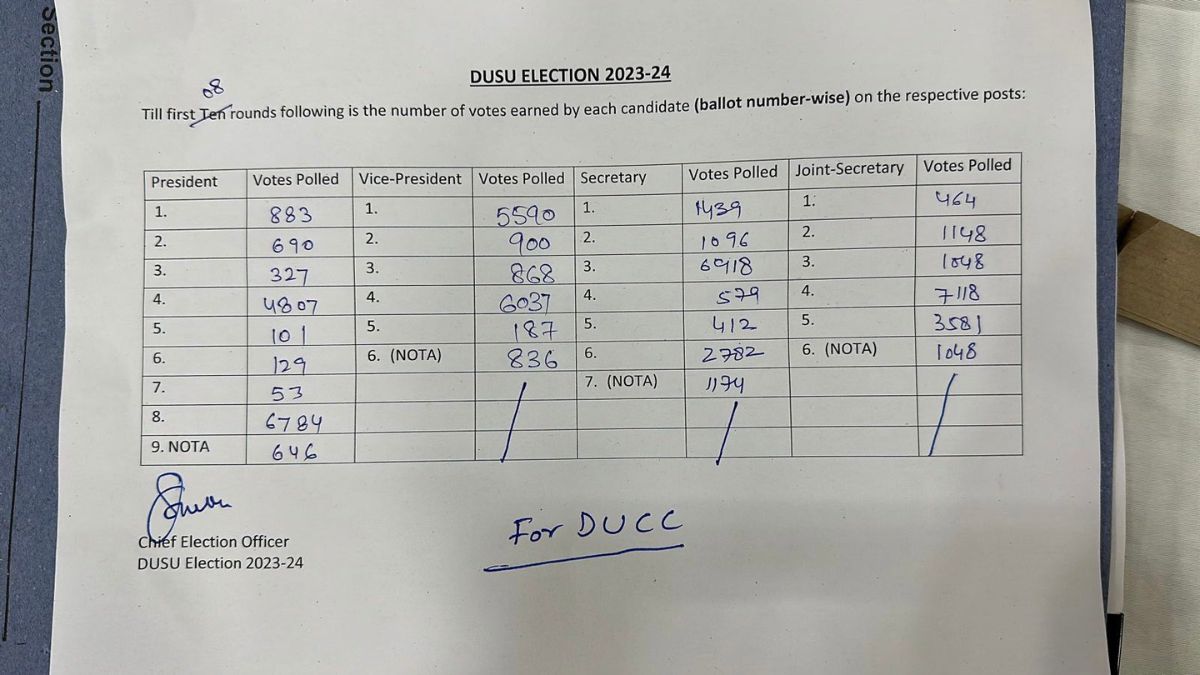 Section
DUSU ELECTION 2023-24
08
Till first Ten rounds following is the number of votes earned by each candidate (ballot number-wise) on the respective posts:
President Votes Polled Vice-President Votes Polled Secretary Votes Polled Joint-Secretary Votes Polled
1. 883 1. 5590 1. 1439 1. 464
2. 690 2. 900 2. 1096 2. 1148
3. 327 3. 868 3. 6918 3. 1048
4. 4807 4. 6037 4. 579 4. 7118
5. 101 5. 187 5. 412 5. 3581
6. 129 6. (NOTA) 836 6. 2782 6. (NOTA) 1048
7. 53 7. (NOTA) 1174
8. 6784
9. NOTA 646
Chief Election Officer
DUSU Election 2023-24
For DUCC